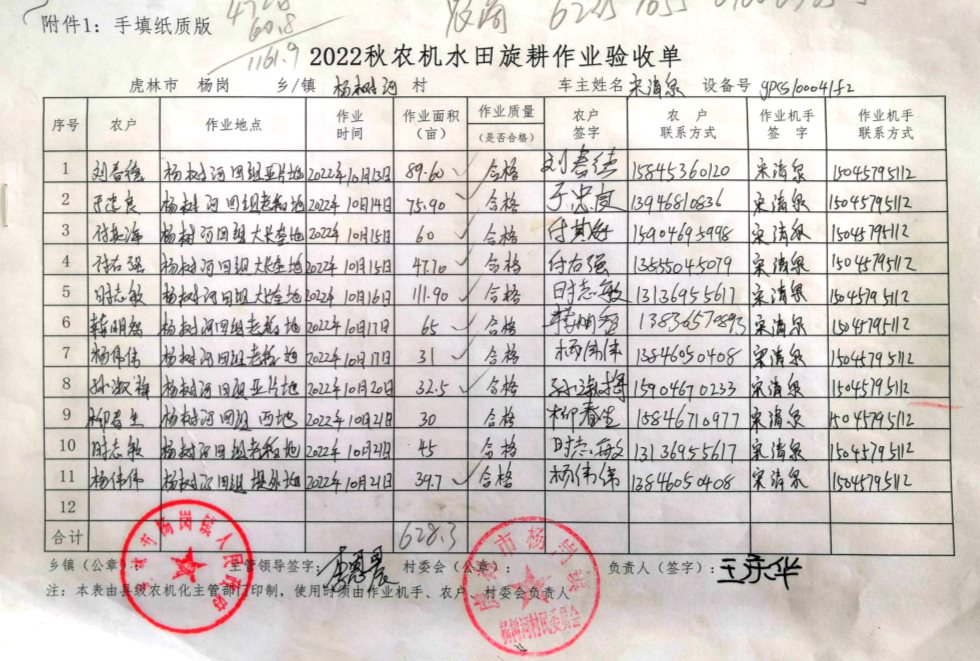 附件1：手填纸质版
60.8
1161.9
2022秋农机水田旋耕作业验收单
虎林市 杨岗 乡/镇 杨树河 村 车主姓名 宋清泉 设备号
序号 农户 作业地点 作业时间 作业面积（亩） 作业质量（是否合格） 农户签字 农户联系方式 作业机手签字 作业机手联系方式
1 刘春德 杨树河四组亚片地 2022年10月13日 89.60 合格 刘春德 15845360120 宋清泉 15045795112
2 于忠良 杨树河四组老稻地 2022年10月14日 75.90 合格 于忠良 13946810836 宋清泉 15045795112
3 杨树河四组大长垄地 2022年10月15日 60 合格 15904695998 宋清泉 15045795112
4 付右强 杨树河四组大长垄地 2022年10月15日 47.70 合格 付右强 13555045079 宋清泉 15045795112
5 时志敏 杨树河四组大长垄地 2022年10月16日 111.90 合格 时志敏 13136955617 宋清泉 15045795112
6 杨树河四组老稻地 2022年10月17日 65 合格 13836570893 宋清泉 15045795112
7 杨伟伟 杨树河四组老稻地 2022年10月17日 31 合格 杨伟伟 13846050408 宋清泉 15045795112
8 杨树河四组亚片地 2022年10月20日 32.5 合格 15904670233 宋清泉 15045795112
9 柳春生 杨树河四组西地 2022年10月21日 30 合格 柳春生 15846710977 宋清泉 15045795112
10 时志敏 杨树河四组老稻地 2022年10月21日 45 合格 时志敏 13136955617 宋清泉 15045795112
11 杨伟伟 杨树河四组堤外地 2022年10月21日 39.7 合格 杨伟伟 13846050408 宋清泉 15045795112
12
合计 628.3
乡镇（公章）： 主管领导签字： 村委会（公章）： 负责人（签字）：王永华
注：本表由县级农机化主管部门印制，使用时须由作业机手、农户、村委会负责人
虎林市杨岗镇人民政府
虎林市杨岗镇
杨树河村村民委员会